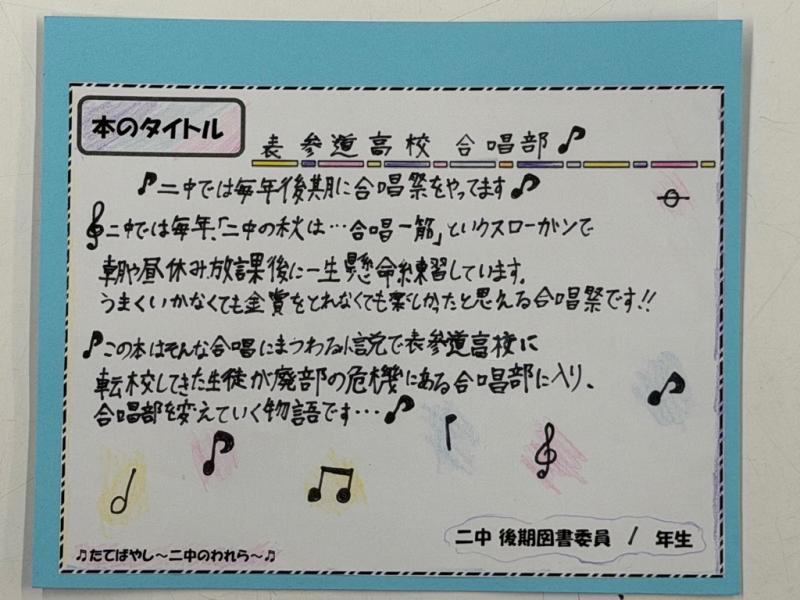 本のタイトル
表参道高校 合唱部♪
♪二中では毎年後期に合唱祭をやってます♪
二中では毎年、「二中の秋は…合唱一筋」というスローガンで
朝や昼休み放課後に一生懸命練習しています。
うまくいかなくても金賞をとれなくても楽しかったと思える合唱祭です!!
♪この本はそんな合唱にまつわる小説で表参道高校に
転校してきた生徒が廃部の危機にある合唱部に入り、
合唱部を変えていく物語です…♪
二中 後期図書委員 / 年生
♫たてばやし~二中のわれら~♫